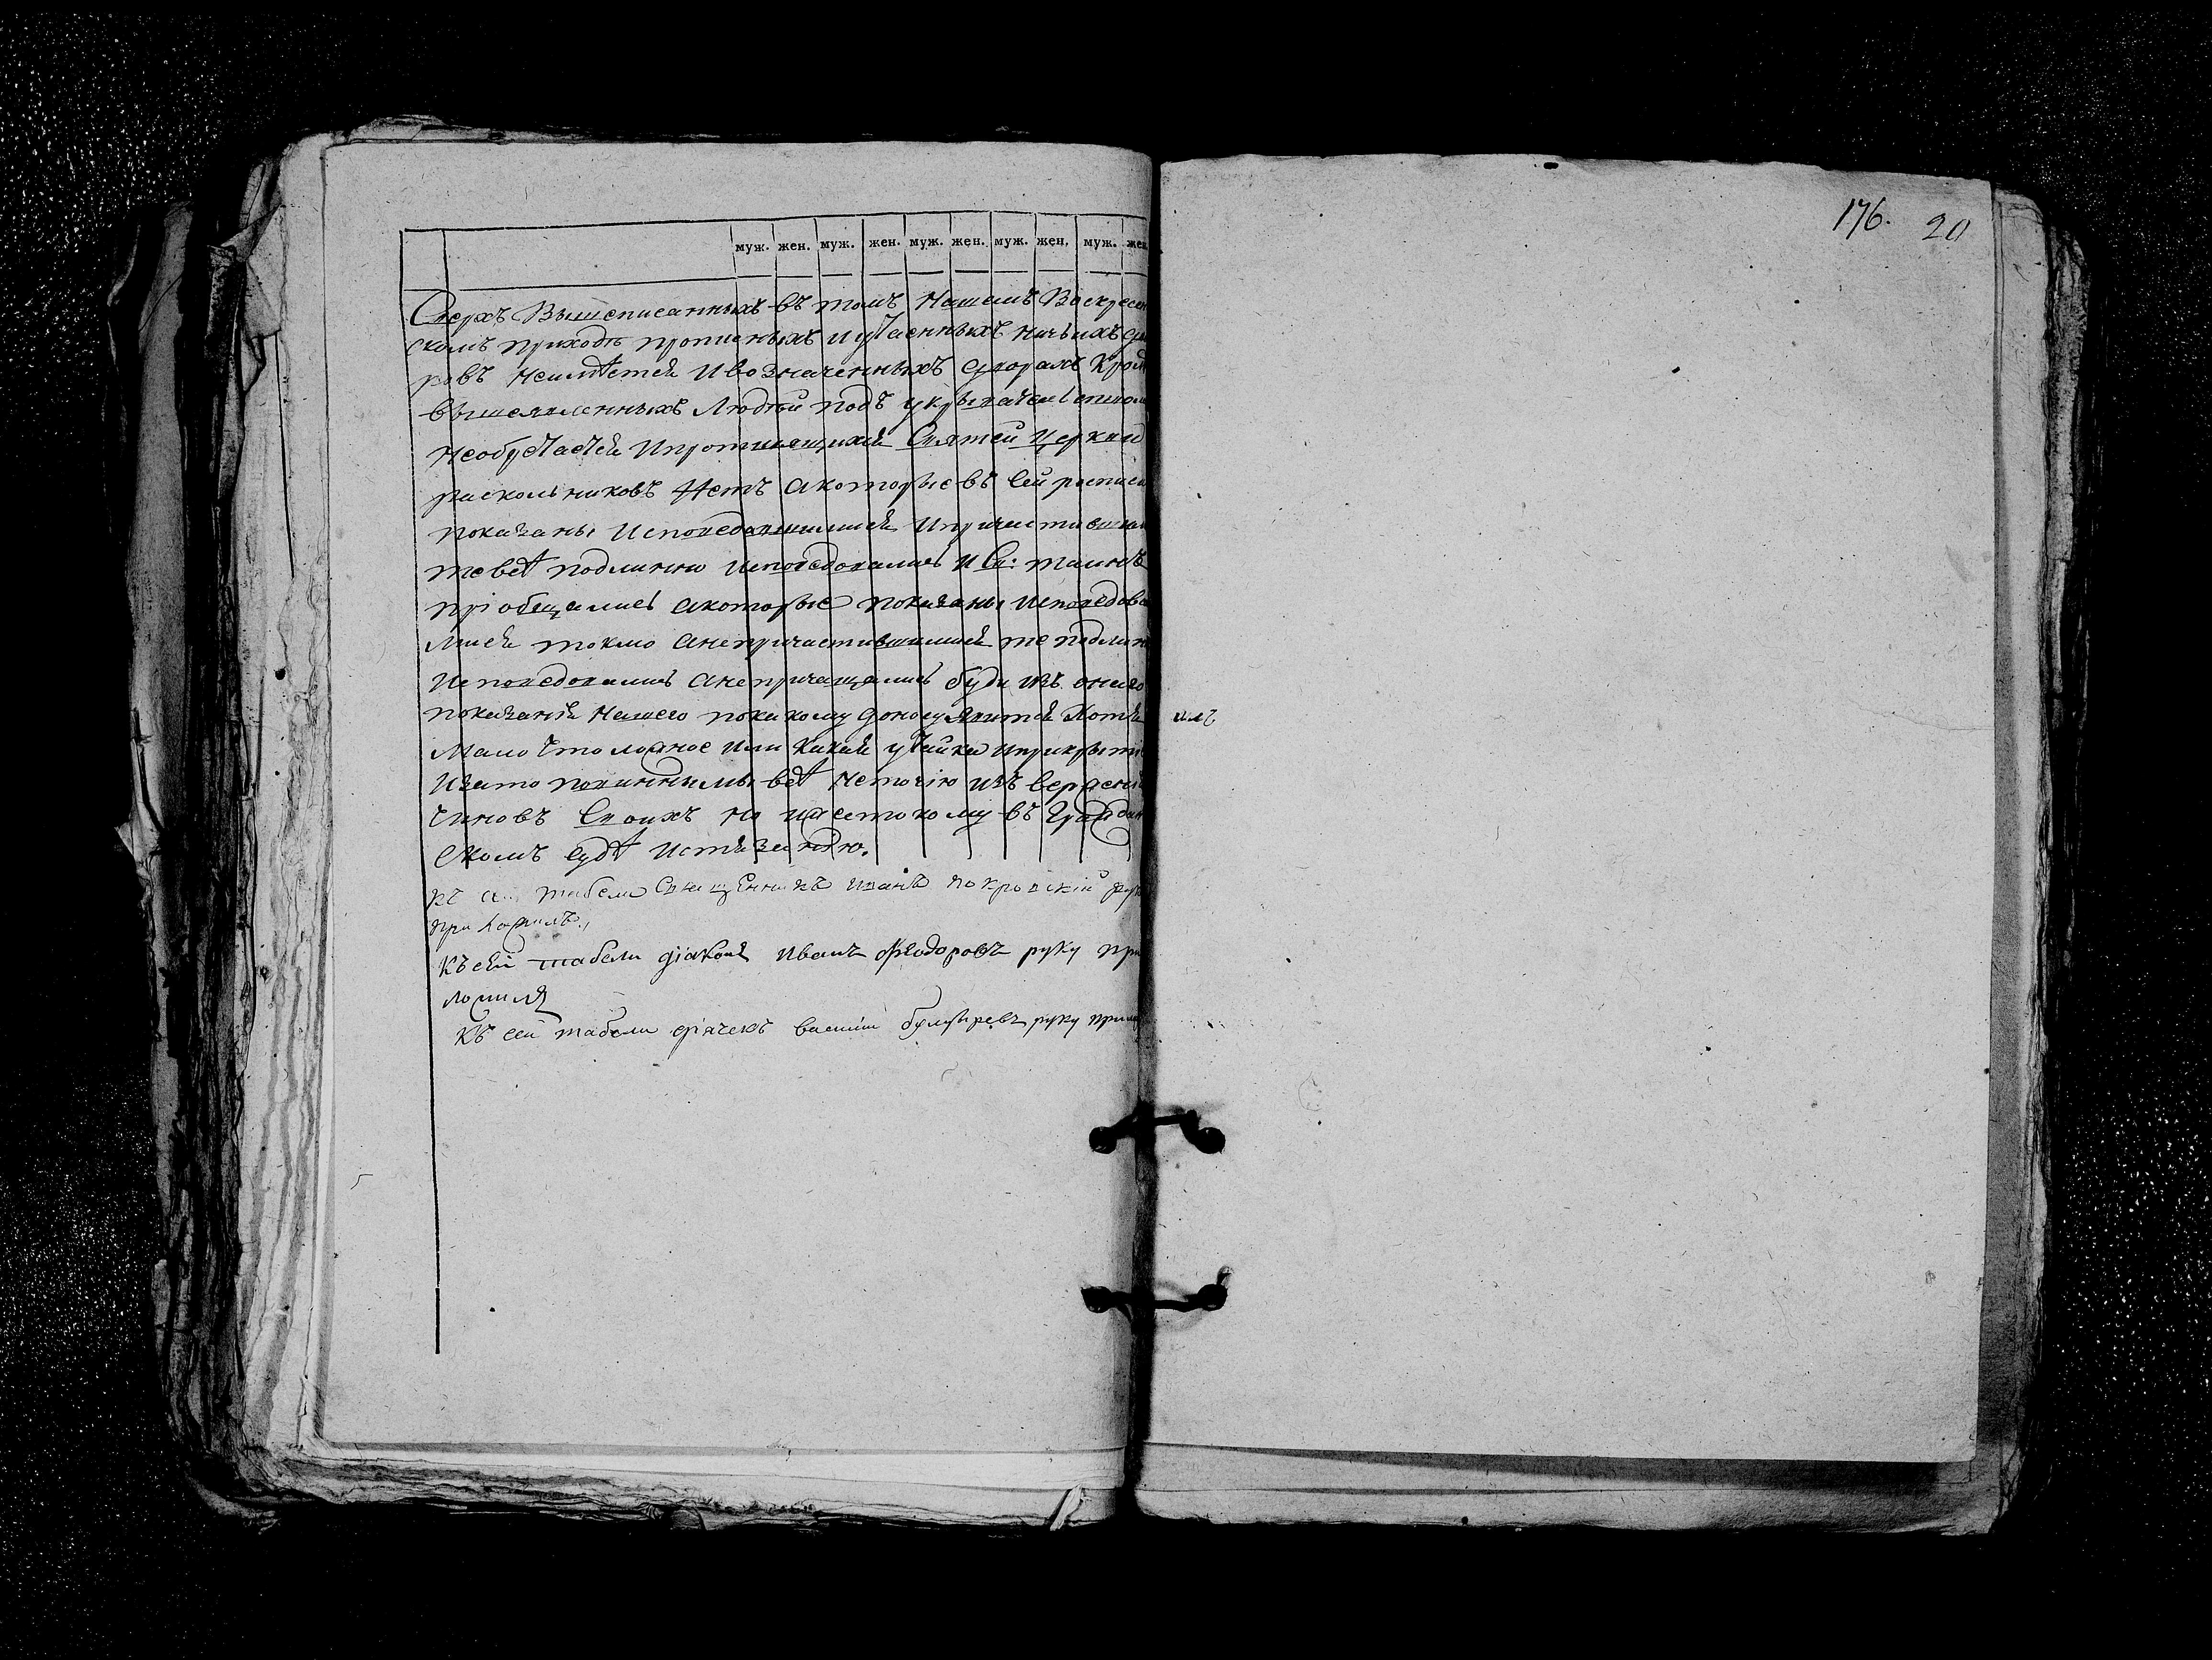 муж. жен. муж. жен. муж. жен. муж. жен. муж. жен.
176. 20
Сверхъ Вышеписанныхъ въ томъ Нашемъ Воскресен
скомъ приходѣ прописныхъ и утаенныхъ ничьихъ дво
ровъ неимѣется И во значенныхъ дворахъ Кромѣ
вышеявленныхъ Людѣй подъ укрывательством
Необретается И противящихся Святей Церкви
раскольниковъ Нетъ а которые въ сей росписи
показаны Исповедавшимися И причастившим
те всѣ подлинно исповедовались И Св: таинъ
пріобщались а которые показаны исповедова
мися токмо а непричастившимися те подлин
Исповедовались а непричащались буди изъ онаго
показанія Нашего по какому доносу явится Хотя
Мало что ложное или какая утайка и прикрыті
И за то повинны мы всѣ неточію изверженію
Чиновъ Своихъ но и жестокому въ Граждан
скомъ судѣ истязанію.
къ сей табели Священникъ Иванъ покровскій рук
приложилъ
Къ сей табели діаконъ Иванъ Феодоровъ руку при
ложилъ
Къ сей табели дячекъ василій руку прило
илъ